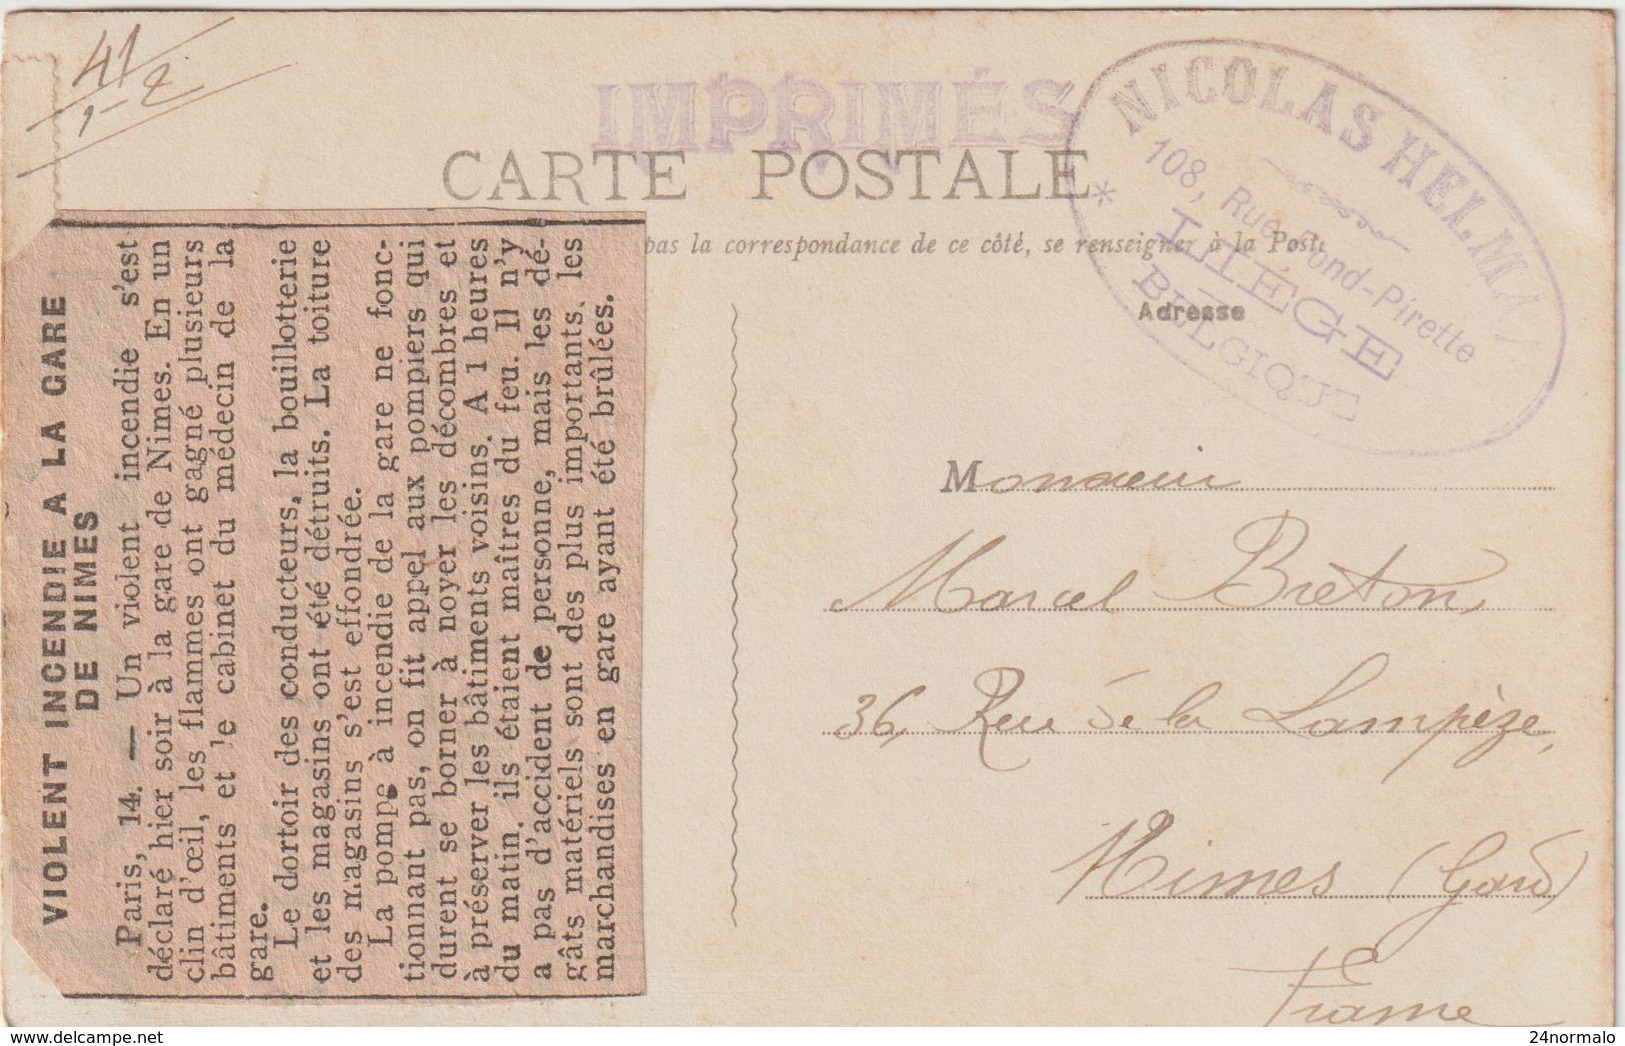 41
1-2
IMPRIMÉS
CARTE POSTALE
pas la correspondance de ce côté, se renseigner à la Poste
NICOLAS HEL.MA
108, Rue Fond-Pirette
LIÈGE
BELGIQUE
Adresse
Monsieur
Marcel Breton,
36, Rue de la Lampèze,
Nimes (Gard)
France
VIOLENT INCENDIE A LA GARE
DE NIMES
Paris, 14. — Un violent incendie s'est
déclaré hier soir à la gare de Nimes. En un
clin d'œil, les flammes ont gagné plusieurs
bâtiments et le cabinet du médecin de la
gare.
Le dortoir des conducteurs, la bouillotterie
et les magasins ont été détruits. La toiture
des magasins s'est effondrée.
La pompe à incendie de la gare ne fonc-
tionnant pas, on fit appel aux pompiers qui
durent se borner à noyer les décombres et
à préserver les bâtiments voisins. A 1 heures
du matin, ils étaient maîtres du feu. Il n'y
a pas d'accident de personne, mais les dé-
gâts matériels sont des plus importants, les
marchandises en gare ayant été brûlées.
www.delcampe.net
24normalo